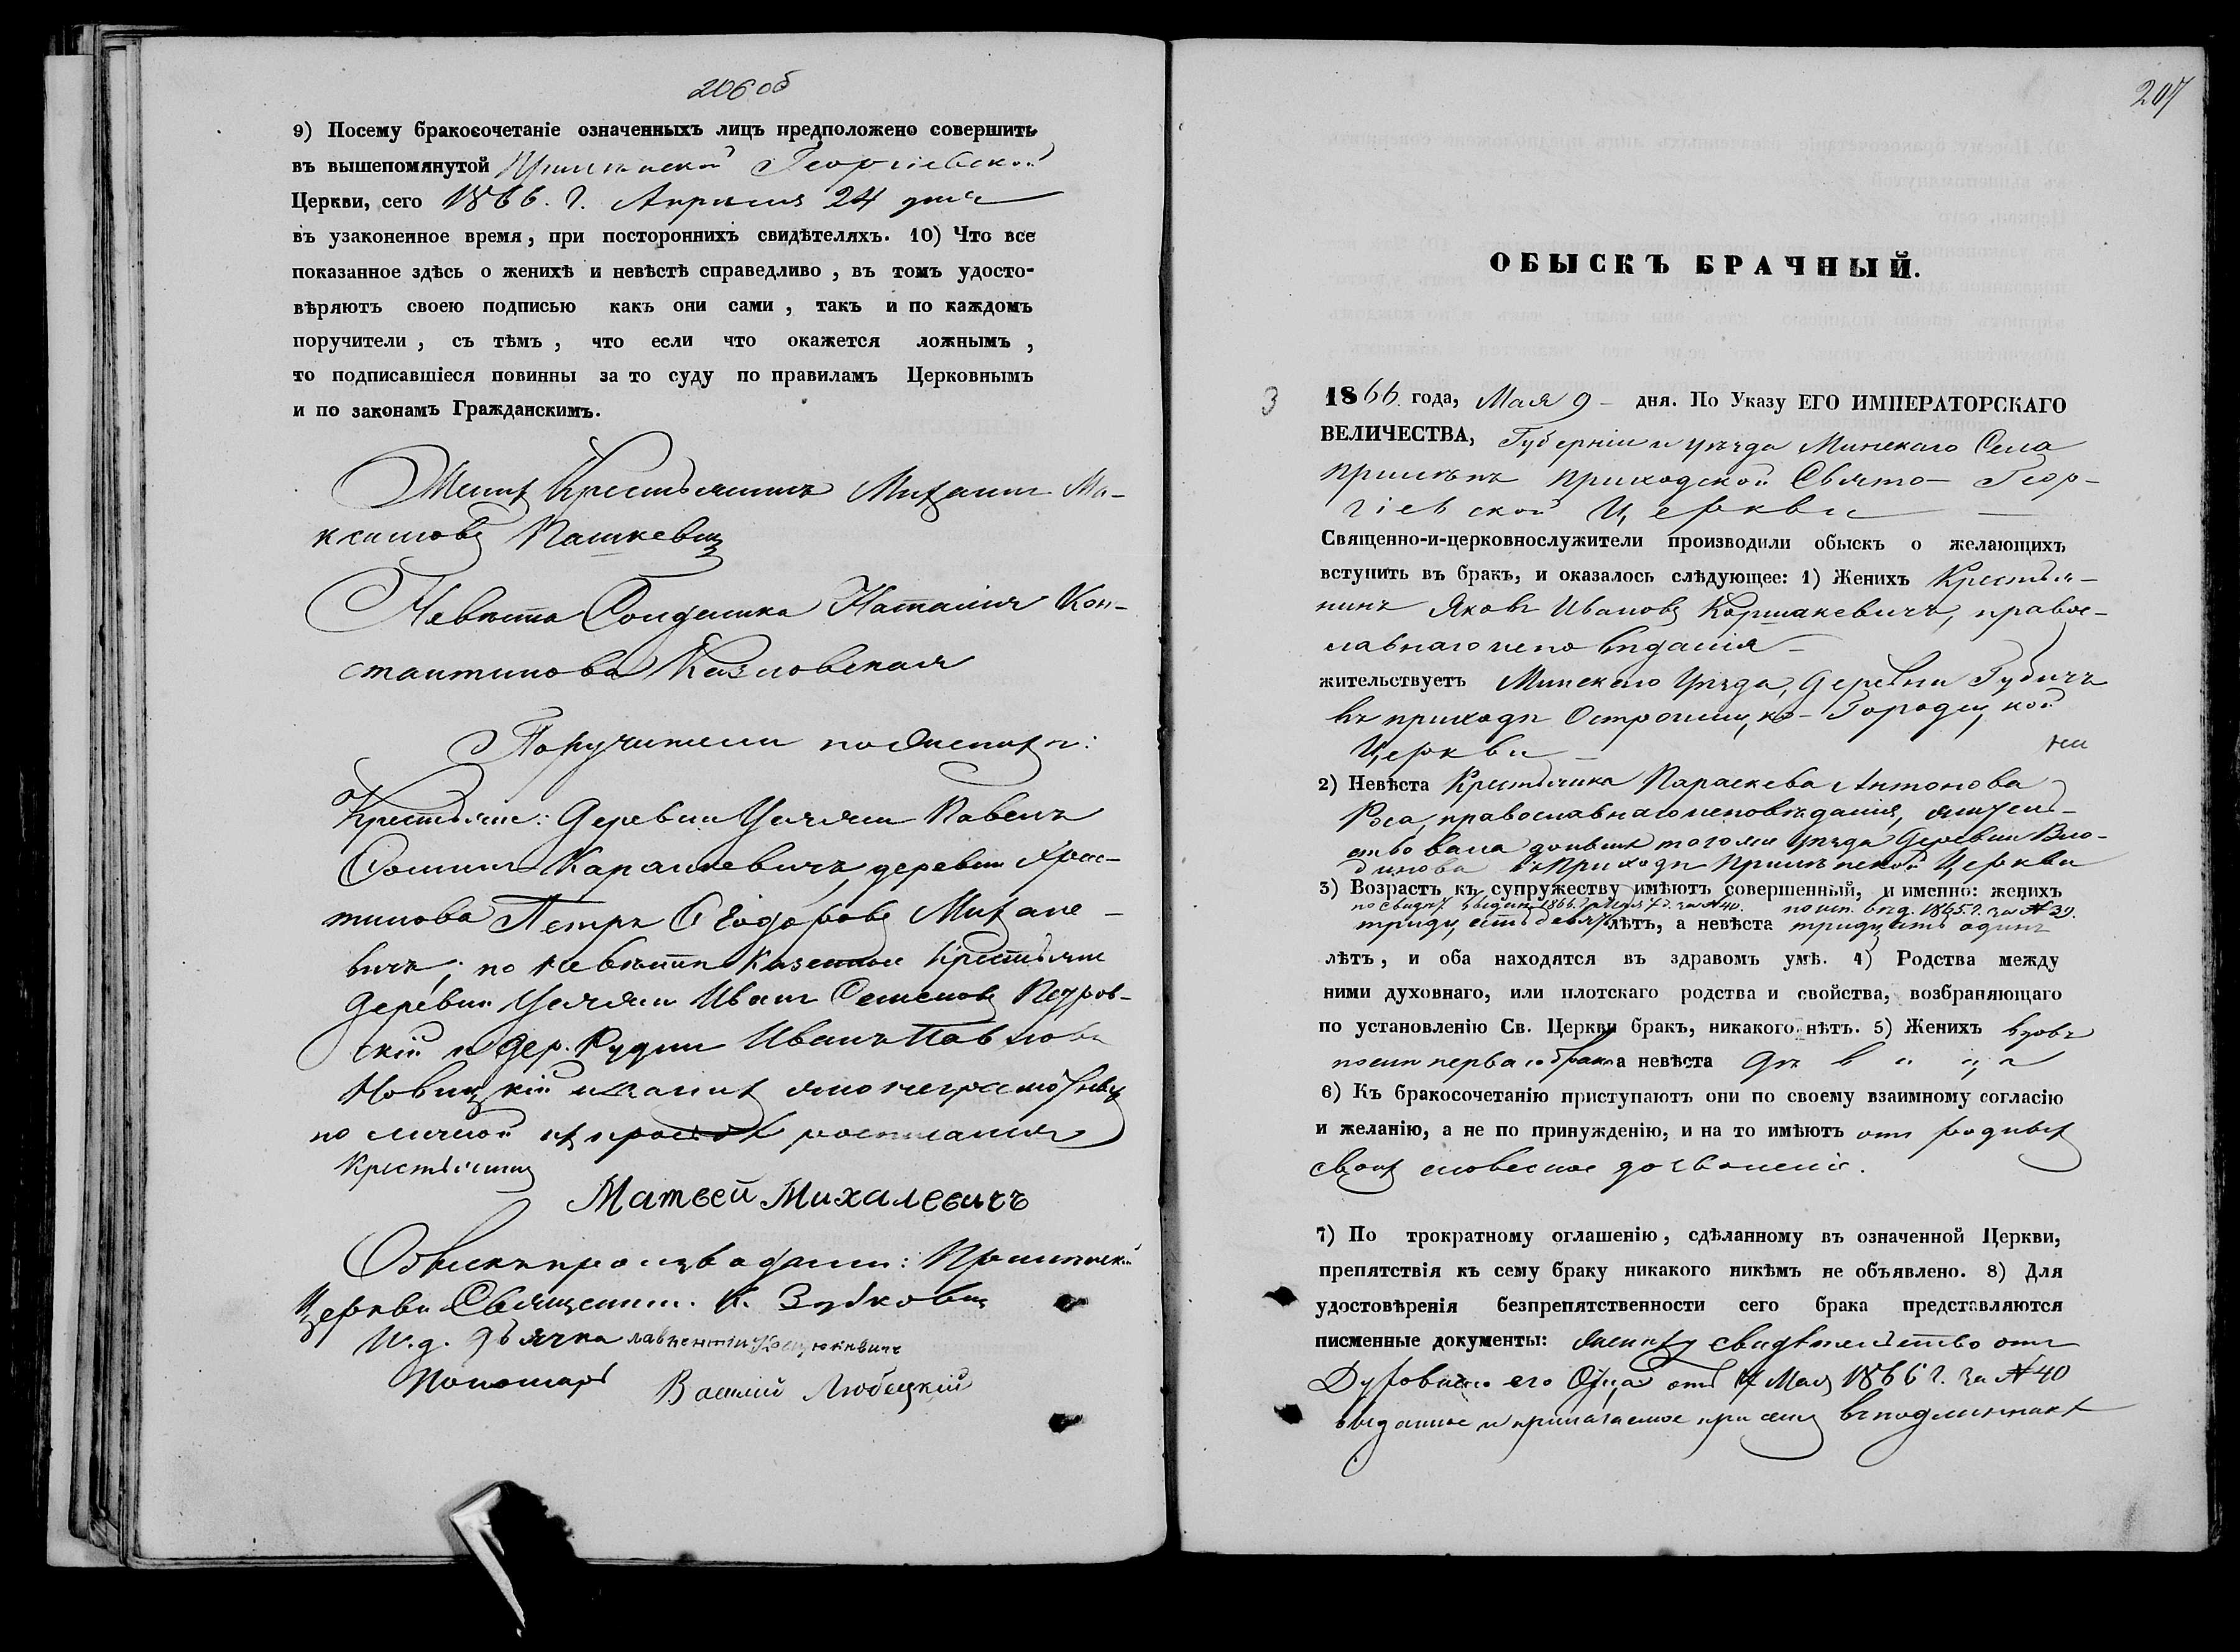 206 об
9) Посему бракосочетаніе означенныхъ лицъ предположено совершить
въ вышепомянутой Прилѣпской Георгіевской
Церкви, сего 1866. г. Апрѣля 24 дня
въ узаконенное время, при постороннихъ свидѣтеляхъ. 10) Что все
показанное здѣсь о женихѣ и невѣстѣ справедливо, въ томъ удосто-
вѣряютъ своею подписью какъ они сами, такъ и по каждомъ
поручители, съ тѣмъ, что если что окажется ложнымъ,
то подписавшіеся повинны за то суду по правиламъ Церковнымъ
и по законамъ Гражданскимъ.
Женихъ Крестьянинъ Михаилъ Ма-
ксимовъ Пашкевичъ
Невѣста Солдатка Наталія Кон-
стантинова Козловская
Поручители по Женихѣ:
Крестьяне: Деревни Усяжи Павелъ
Фоминъ Каралкевичъ, деревни
Петръ Ѳеодоровъ Михале-
вичъ; по невѣстѣ Казенные Крестьяне
Деревни Усяжи Иванъ Семеновъ Петров-
скій и дер. Рудни Иванъ Павловъ
Новицкій
по личной ихъ просьбѣ росписался
Крестьянинъ
Матвей Михалевичъ
Обыскъ производили: Прилѣпской
Церкви Священник. К. Зубковичъ
И. д. Дьячка Лаврентій
Пономарь Василій Любецкій
207
ОБЫСКЪ БРАЧНЫЙ.
3 1866 года, Мая 9 – дня. По Указу ЕГО ИМПЕРАТОРСКАГО
ВЕЛИЧЕСТВА, Губерніи и уѣзда Минскаго Села
Прилѣпъ Приходской Свято-Геор-
гіевской Церкви
Священно-и-церковнослужители производили обыскъ о желающихъ
вступить въ бракъ, и оказалось слѣдующее: 1) Женихъ Крестья-
нинъ Яковъ Ивановъ Коршакевичъ, право-
славнаго исповѣданія
жительствуетъ Минскаго уѣзда, Деревни Губичъ
въ приходѣ Острошицко-Городецкой
Церкви
2) Невѣста Крестьянка Параскева Антонова
Роса, православнаго исповѣданія, жительст-
вовала донынѣ того же уѣзда Деревни
въ Приходѣ Прилѣпской Церкви
3) Возрастъ къ супружеству имѣютъ совершенный, и именно: женихъ
по свидѣт. выдан. 1866 г. мая 7 д. за № 40. по исп. вѣд. 1865 г. за № 39.
тридцать девять лѣтъ, а невѣста тридцать одинъ
лѣтъ, и оба находятся въ здравомъ умѣ. 4) Родства между
ними духовнаго, или плотскаго родства и свойства, возбраняющаго
по установленію Св. Церкви бракъ, никакого нѣтъ. 5) Женихъ вдовъ
послѣ перваго брака а невѣста дѣвица
6) Къ бракосочетанію приступаютъ они по своему взаимному согласію
и желанію, а не по принужденію, и на то имѣютъ отъ родныхъ
своихъ словесное дозволеніе.
7) По трократному оглашенію, сдѣланному въ означенной Церкви,
препятствія къ сему браку никакого никѣмъ не объявлено. 8) Для
удостовѣренія безпрепятственности сего брака представляются
писменные документы: жениху свидѣтельство отъ
Духовнаго его Отца отъ Мая 1866 г. за № 40
выданное и прилагаемое при семъ въ подлинникѣ